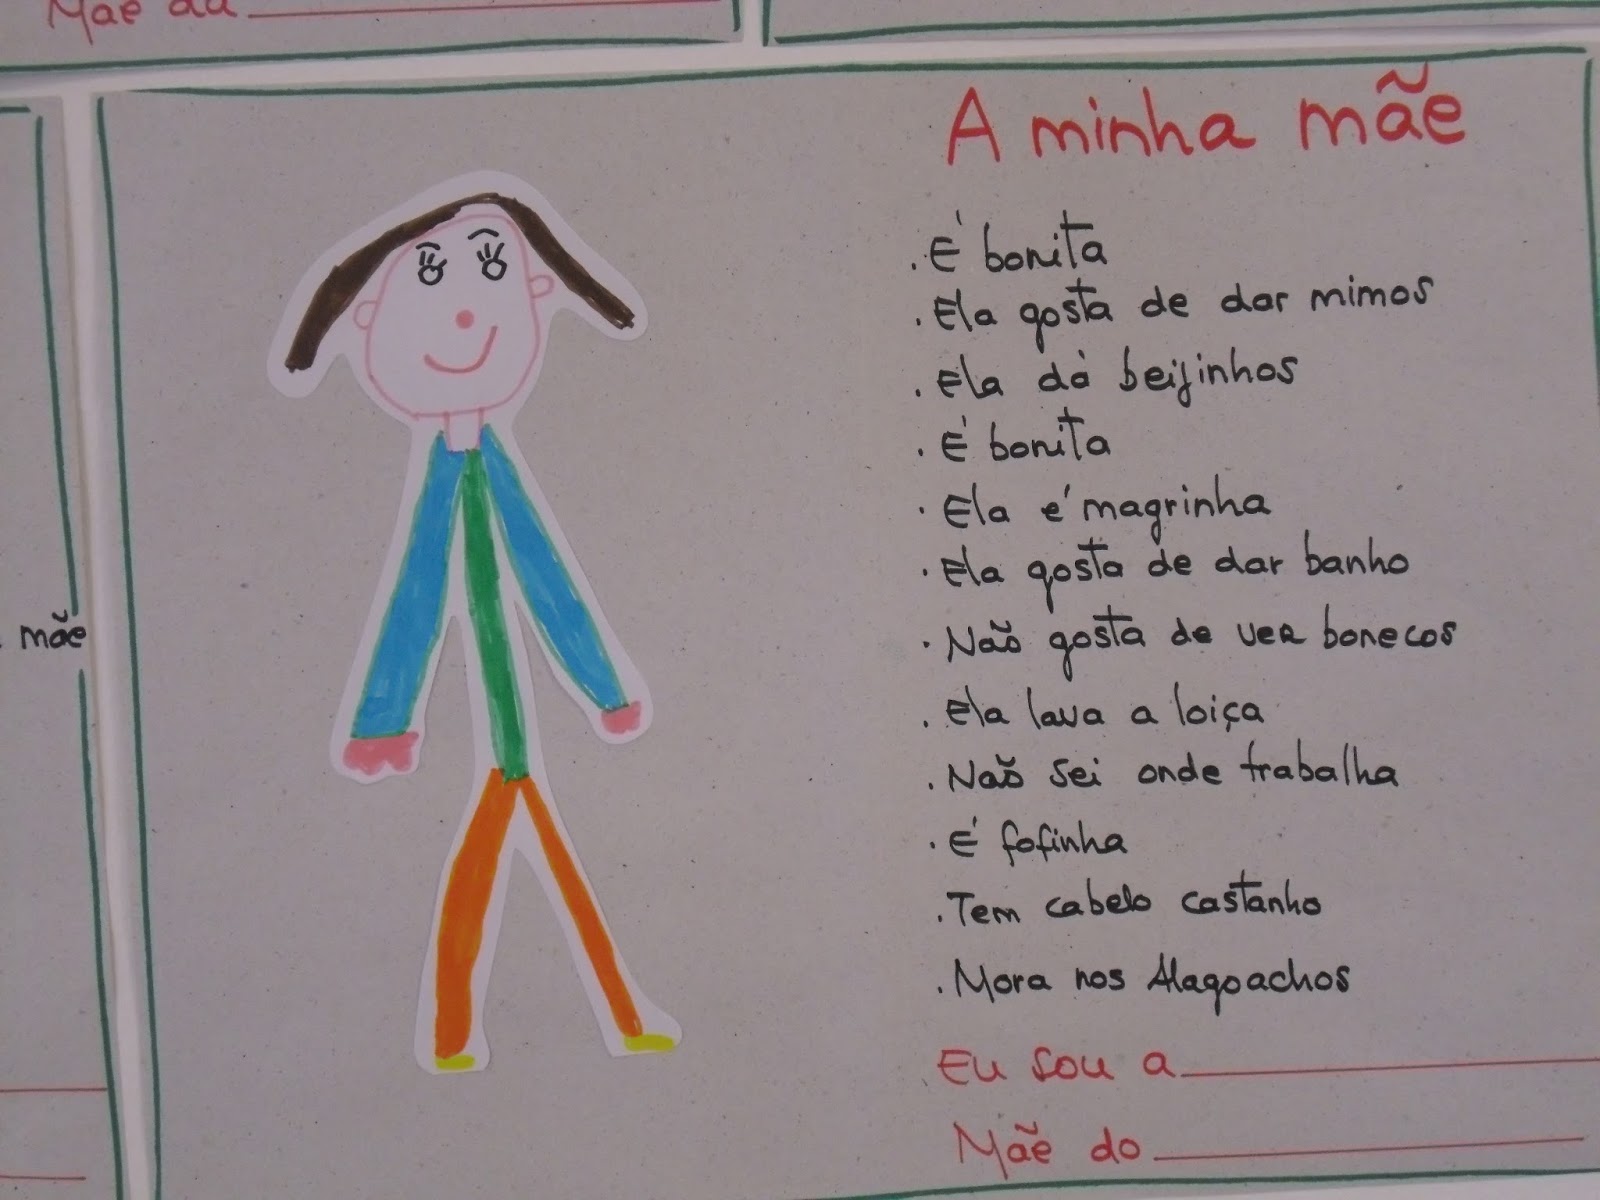 Mãe da
A minha mãe
. É bonita
. Ela gosta de dar mimos
. Ela dá beijinhos
. É bonita
. Ela é magrinha
. Ela gosta de dar banho
. Não gosta de ver bonecos
. Ela lava a loiça
. Não sei onde trabalha
. É fofinha
. Tem cabelo castanho
. Mora nos Alagoachos
Eu sou a
Mãe do
mãe